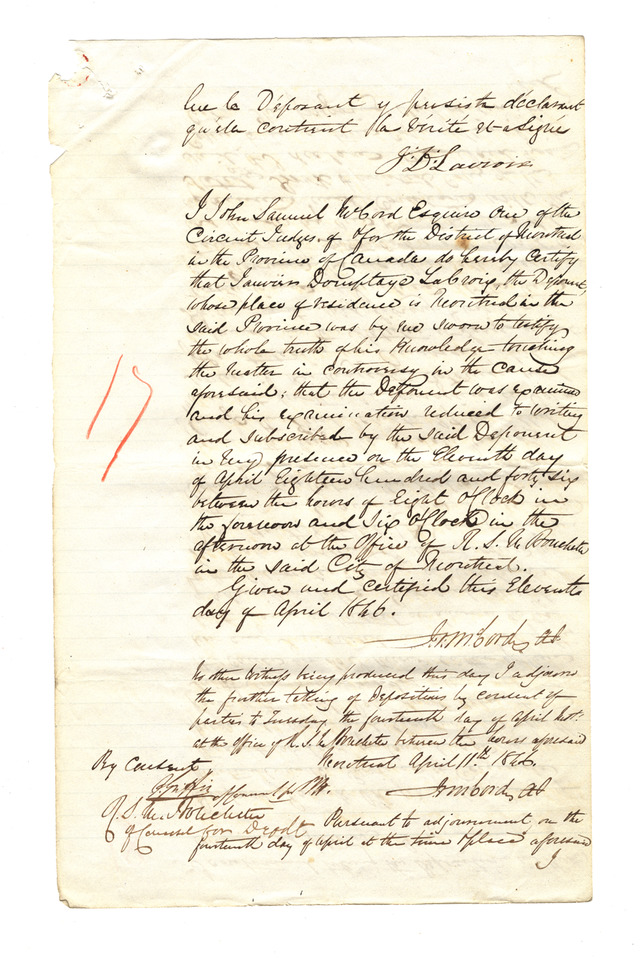 lue le Déposant y persiste déclarant
qu'elle contient la vérité et a signé
J. D. Lacroix
I John Samuel McCord Esquire One of the
Circuit Judges of & for the District of Montreal
in the Province of Canada do hereby certify
that Janvier Domptage LaCroix, the Deponent,
whose place of residence is Montreal in the
said Province was by me sworn to testify
the whole truth of his Knowledge touching
the matter in controversy in the cause
aforesaid; that the Deponent was examined
and his examination reduced to writing
and subscribed by the said Deponent
in my presence on the Eleventh day
of April Eighteen hundred and forty six
between the hours of Eight O'Clock in
the forenoon and Six O'Clock in the
afternoon at the Office of R. S. M. Bouchette
in the said City of Montreal.
Given and certified this Eleventh
day of April 1846.
J. S. McCord,
17
No other witness being produced this day I adjourn
the further taking of Depositions by consent of
parties to Tuesday the fourteenth day of April
at the office of R. S. M. Bouchette between the hours aforesaid
Montreal April 11th 1846.
J. S. McCord,
By Consent
Griffin
R. S. M. Bouchette
of Counsel for Deft
Pursuant to adjournment on the
fourteenth day of April at the time & place aforesaid
I